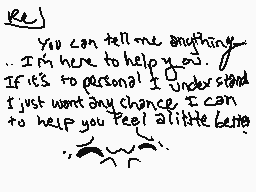 Re)
You can tell me anything
.. I'm here to help you.
If it's to personal I understand
I just want any chance I can
to help you feel a little better